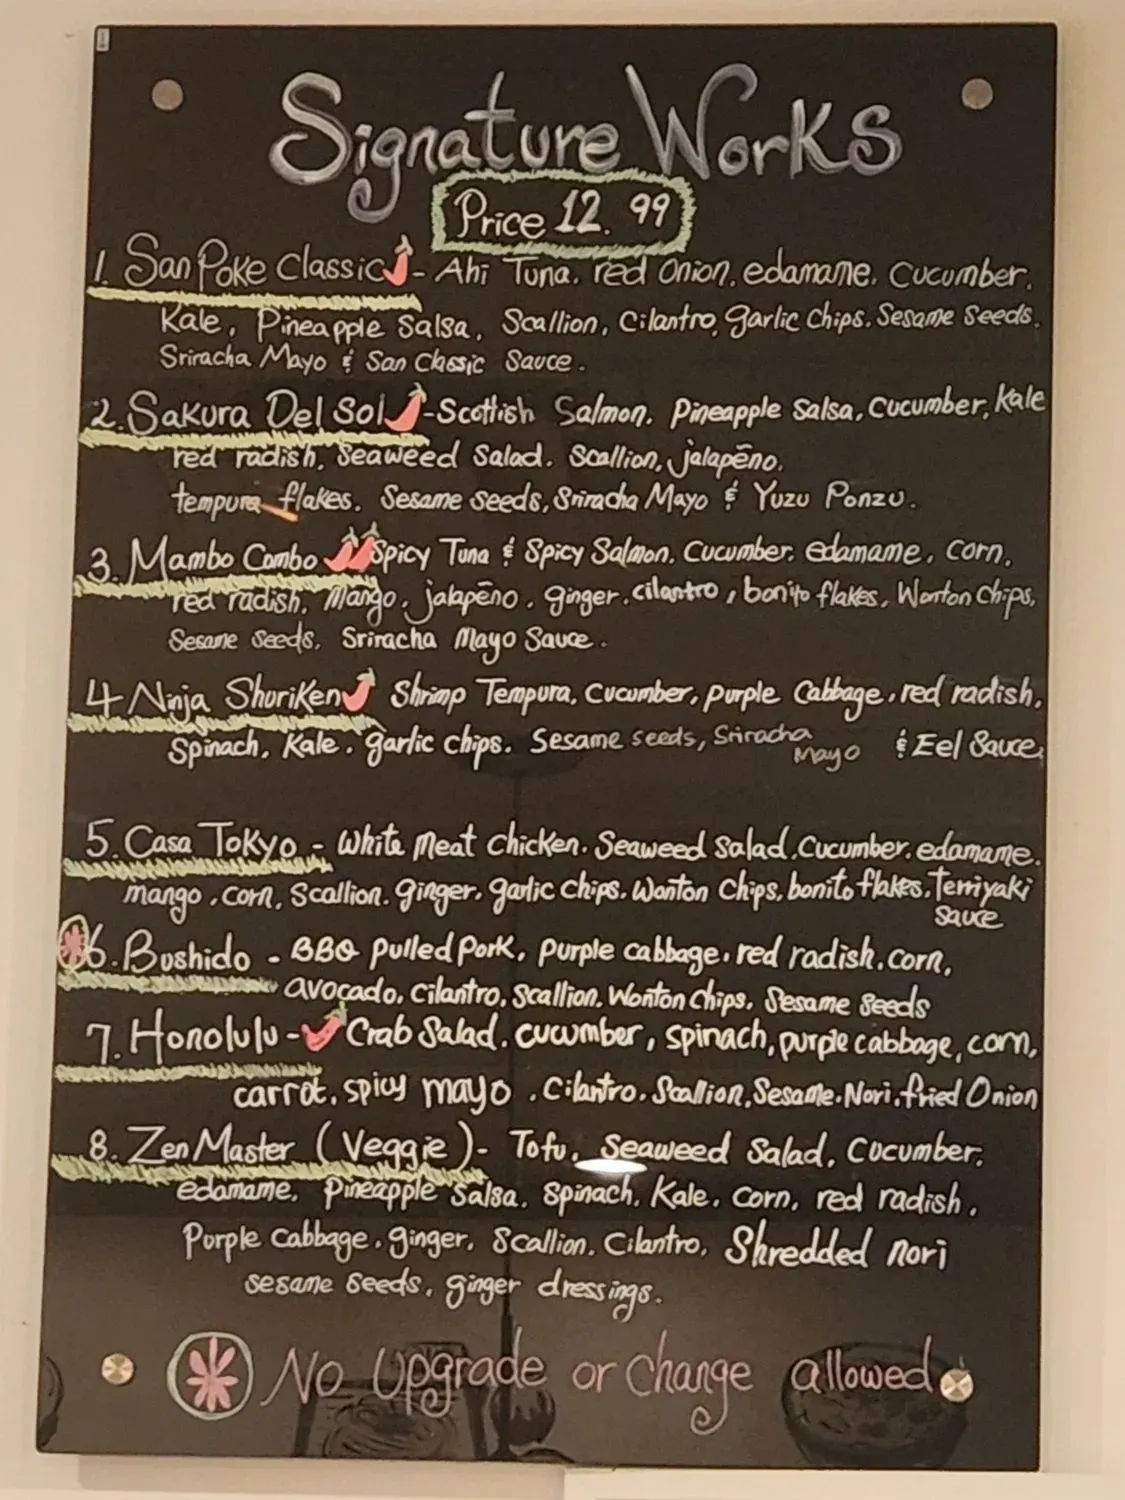 Signature Works
Price 12.99
1. San Poke Classic - Ahi Tuna, red Onion, edamame, Cucumber,
Kale, Pineapple Salsa, Scallion, Cilantro, garlic Chips, Sesame Seeds,
Sriracha Mayo & San Classic Sauce.
2. Sakura Del Sol - Scottish Salmon, Pineapple Salsa, Cucumber, Kale
red radish, Seaweed Salad, Scallion, jalapēno,
tempura flakes, Sesame seeds, Sriracha Mayo & Yuzu Ponzu.
3. Mambo Combo Spicy Tuna & Spicy Salmon, Cucumber, edamame, corn,
red radish, Mango, jalapēno, ginger, cilantro, bonito flakes, Wonton Chips,
Sesame Seeds, Sriracha Mayo Sauce.
4 Ninja Shuriken Shrimp Tempura, Cucumber, purple Cabbage, red radish,
Spinach, Kale, garlic chips, Sesame seeds, Sriracha Mayo & Eel Sauce,
5. Casa Tokyo - White Meat Chicken, Seaweed Salad, Cucumber, edamame,
mango, corn, Scallion, ginger, garlic chips, Wonton Chips, bonito flakes, Terriyaki
Sauce
6. Bushido - BBQ Pulled Pork, purple cabbage, red radish, corn,
avocado, Cilantro, Scallion, Wonton Chips, Sesame Seeds
7. Honolulu - Crab Salad, cucumber, spinach, purple cabbage, corn,
carrot, spicy mayo, Cilantro, Scallion, Sesame, Nori, fried Onion
8. Zen Master (Veggie) - Tofu, Seaweed Salad, Cucumber,
edamame, Pineapple Salsa, Spinach, Kale, corn, red radish,
Purple Cabbage, ginger, Scallion, Cilantro, Shredded nori
sesame seeds, ginger dressings.
No Upgrade or Change allowed